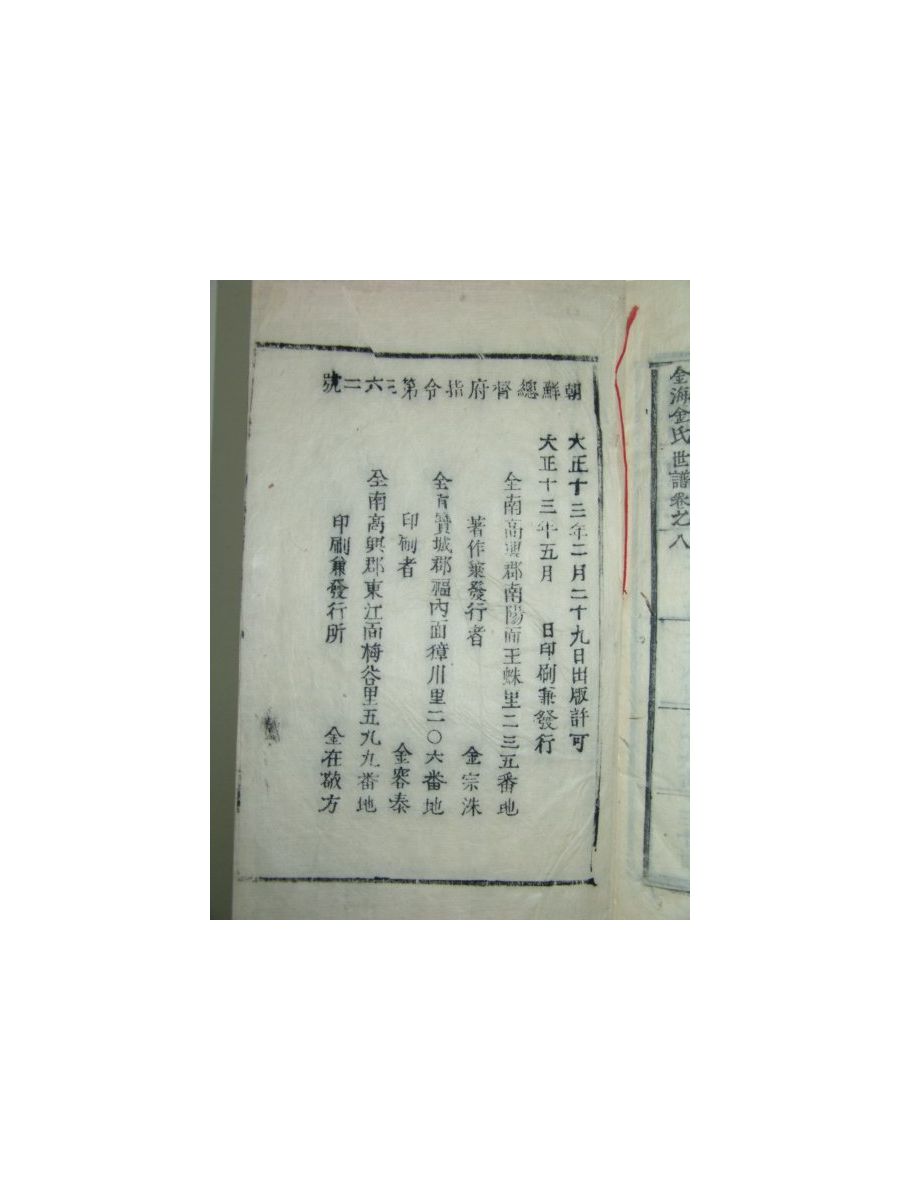 金海金氏世譜卷之八
朝鮮總督府指令第三六二號
大正十三年二月二十九日出版許可
大正十三年五月 日印刷兼發行
全南高興郡南陽面王蛛里二三五番地
著作兼發行者 金宗洙
全南寶城郡福內面獐川里二〇六番地
印刷者 金容泰
全南高興郡東江面梅谷里五九九番地
印刷兼發行所 金在敬方